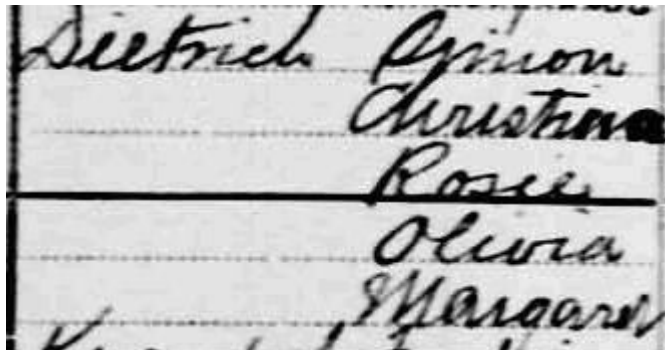 Dietrich Simon
Christina
Rosie
Olivia
Margaret